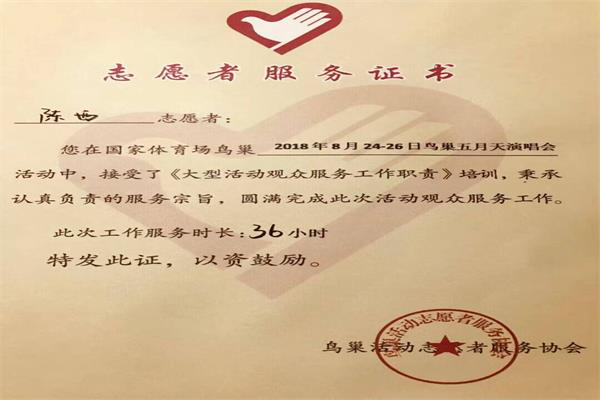 志愿者服务证书
陈西 志愿者：
您在国家体育场鸟巢 2018年8月24-26日鸟巢五月天演唱会
活动中，接受了《大型活动观众服务工作职责》培训，秉承
认真负责的服务宗旨，圆满完成此次活动观众服务工作。
此次工作服务时长：36小时
特发此证，以资鼓励。
鸟巢活动志愿者服务协会
鸟巢活动志愿者服务协会